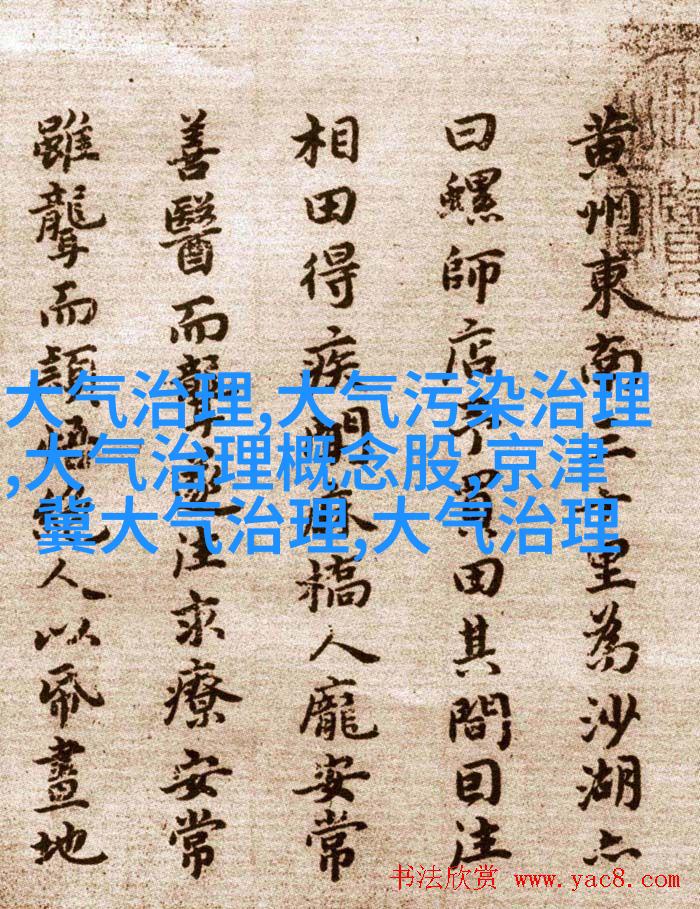 黄州東南三十里為沙湖亦
曰螺師店予買田其間因往
相田得疾聞麻橋人龐安常
善醫而聾遂往求療安常
雖聾而穎悟絶人以紙畫地
大气治理,大气污染治理
,大气治理概念股,京津
冀大气治理,大气治理
书法欣赏 www.yac8.com